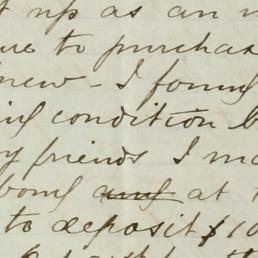 up as an
to purchas
new - I found
ing condition b
y friends I ma
bond any at t
to deposit $10